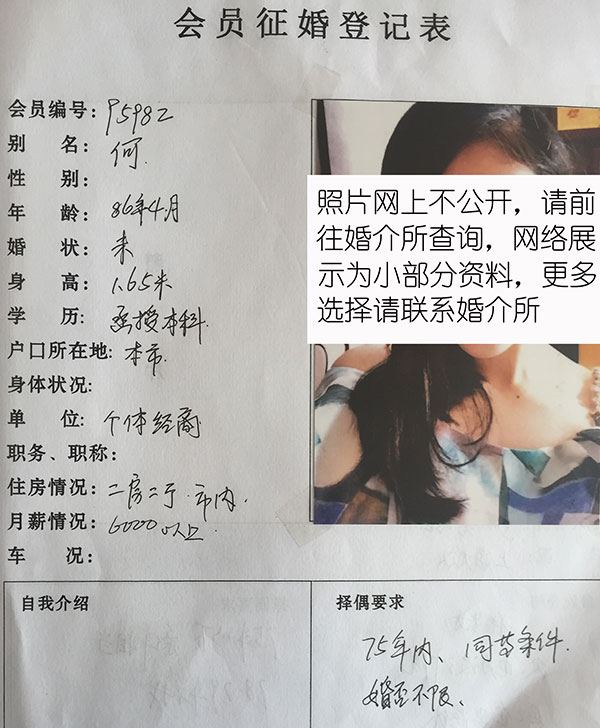 会员征婚登记表
会员编号：P5982
别 名：何.
性 别：
年 龄：86年4月
婚 状：未
身 高：1.65米
学 历：函授本科.
户口所在地：本市.
身体状况：
单 位：个体经商
职务、职称：
住房情况：二房二厅.市内.
月薪情况：6000以上.
车 况：
照片网上不公开，请前
往婚介所查询，网络展
示为小部分资料，更多
选择请联系婚介所
自我介绍
择偶要求
75年内、同等条件.
婚否不限.